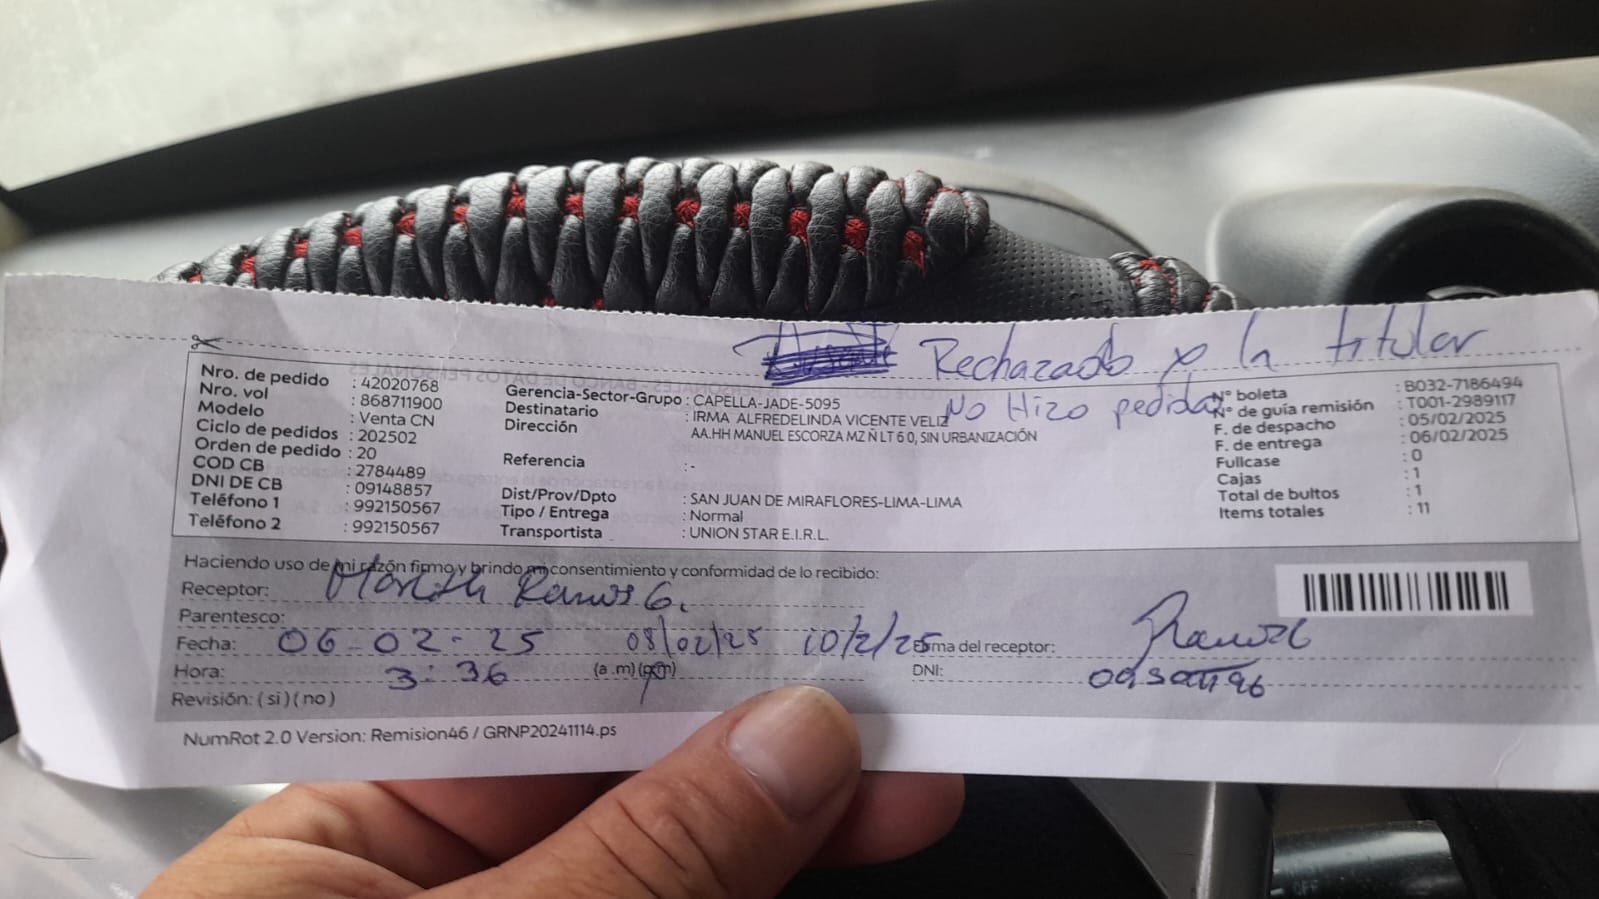 Rechazado x la titular
No Hizo pedido
Nro. de pedido : 42020768
Nro. vol : 868711900
Modelo : Venta CN
Ciclo de pedidos : 202502
Orden de pedido : 20
COD CB : 2784489
DNI DE CB : 09148857
Teléfono 1 : 992150567
Teléfono 2 : 992150567
Gerencia-Sector-Grupo : CAPELLA-JADE-5095
Destinatario : IRMA ALFREDELINDA VICENTE VELIZ
Dirección AA.HH MANUEL ESCORZA MZ Ñ LT 6 0, SIN URBANIZACIÓN
Referencia : -
Dist/Prov/Dpto : SAN JUAN DE MIRAFLORES-LIMA-LIMA
Tipo / Entrega : Normal
Transportista : UNION STAR E.I.R.L.
N° boleta : B032-7186494
N° de guía remisión : T001-2989117
F. de despacho : 05/02/2025
F. de entrega : 06/02/2025
Fullcase : 0
Cajas : 1
Total de bultos : 1
Items totales : 11
Haciendo uso de mi razón firmo y brindo mi consentimiento y conformidad de lo recibido:
Receptor: Ramos G.
Parentesco:
Fecha: 06-02-25 08/02/25 10/2/25
Hora: 3:36 (a.m) (pm)
Revisión: ( si ) ( no )
Firma del receptor:
DNI:
NumRot 2.0 Version: Remision46 / GRNP20241114.ps